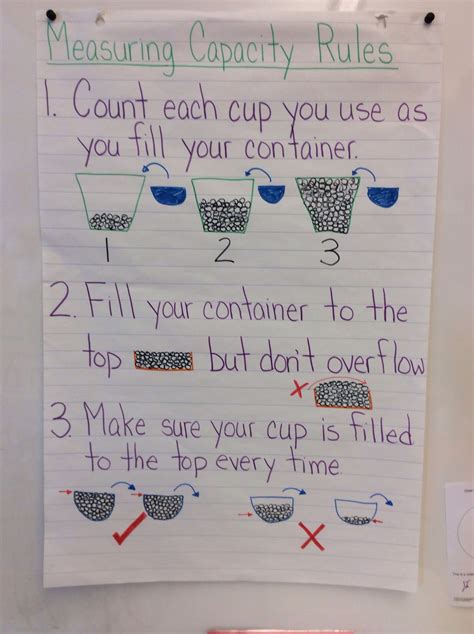 Measuring Capacity Rules
1. Count each cup you use as
you fill your container.
1 2 3
2. Fill your container to the
top but don't overflow
3. Make sure your cup is filled
to the top every time